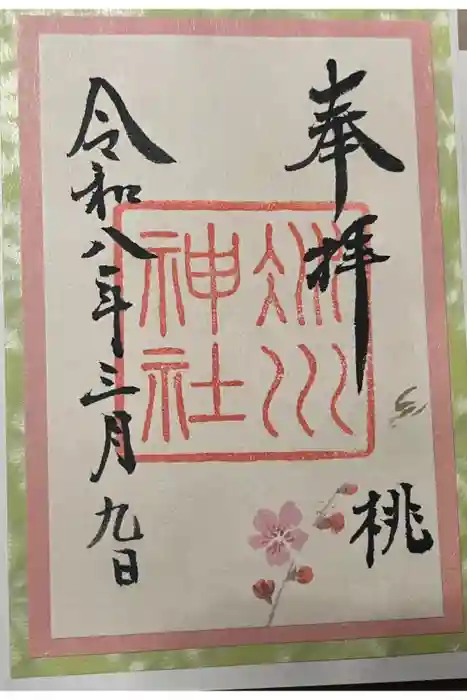 奉拝
桃
氷川
神社
令和八年三月九日